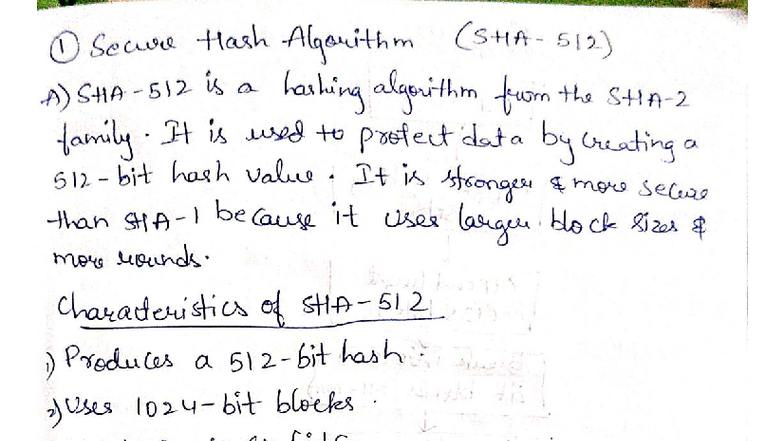 ① Secure Hash Algorithm (SHA-512)
A) SHA-512 is a hashing algorithm from the SHA-2
family. It is used to protect data by creating a
512-bit hash value. It is stronger & more secure
than SHA-1 because it uses larger block sizes &
more rounds.
Characteristics of SHA-512
1) Produces a 512-bit hash.
2) Uses 1024-bit blocks.